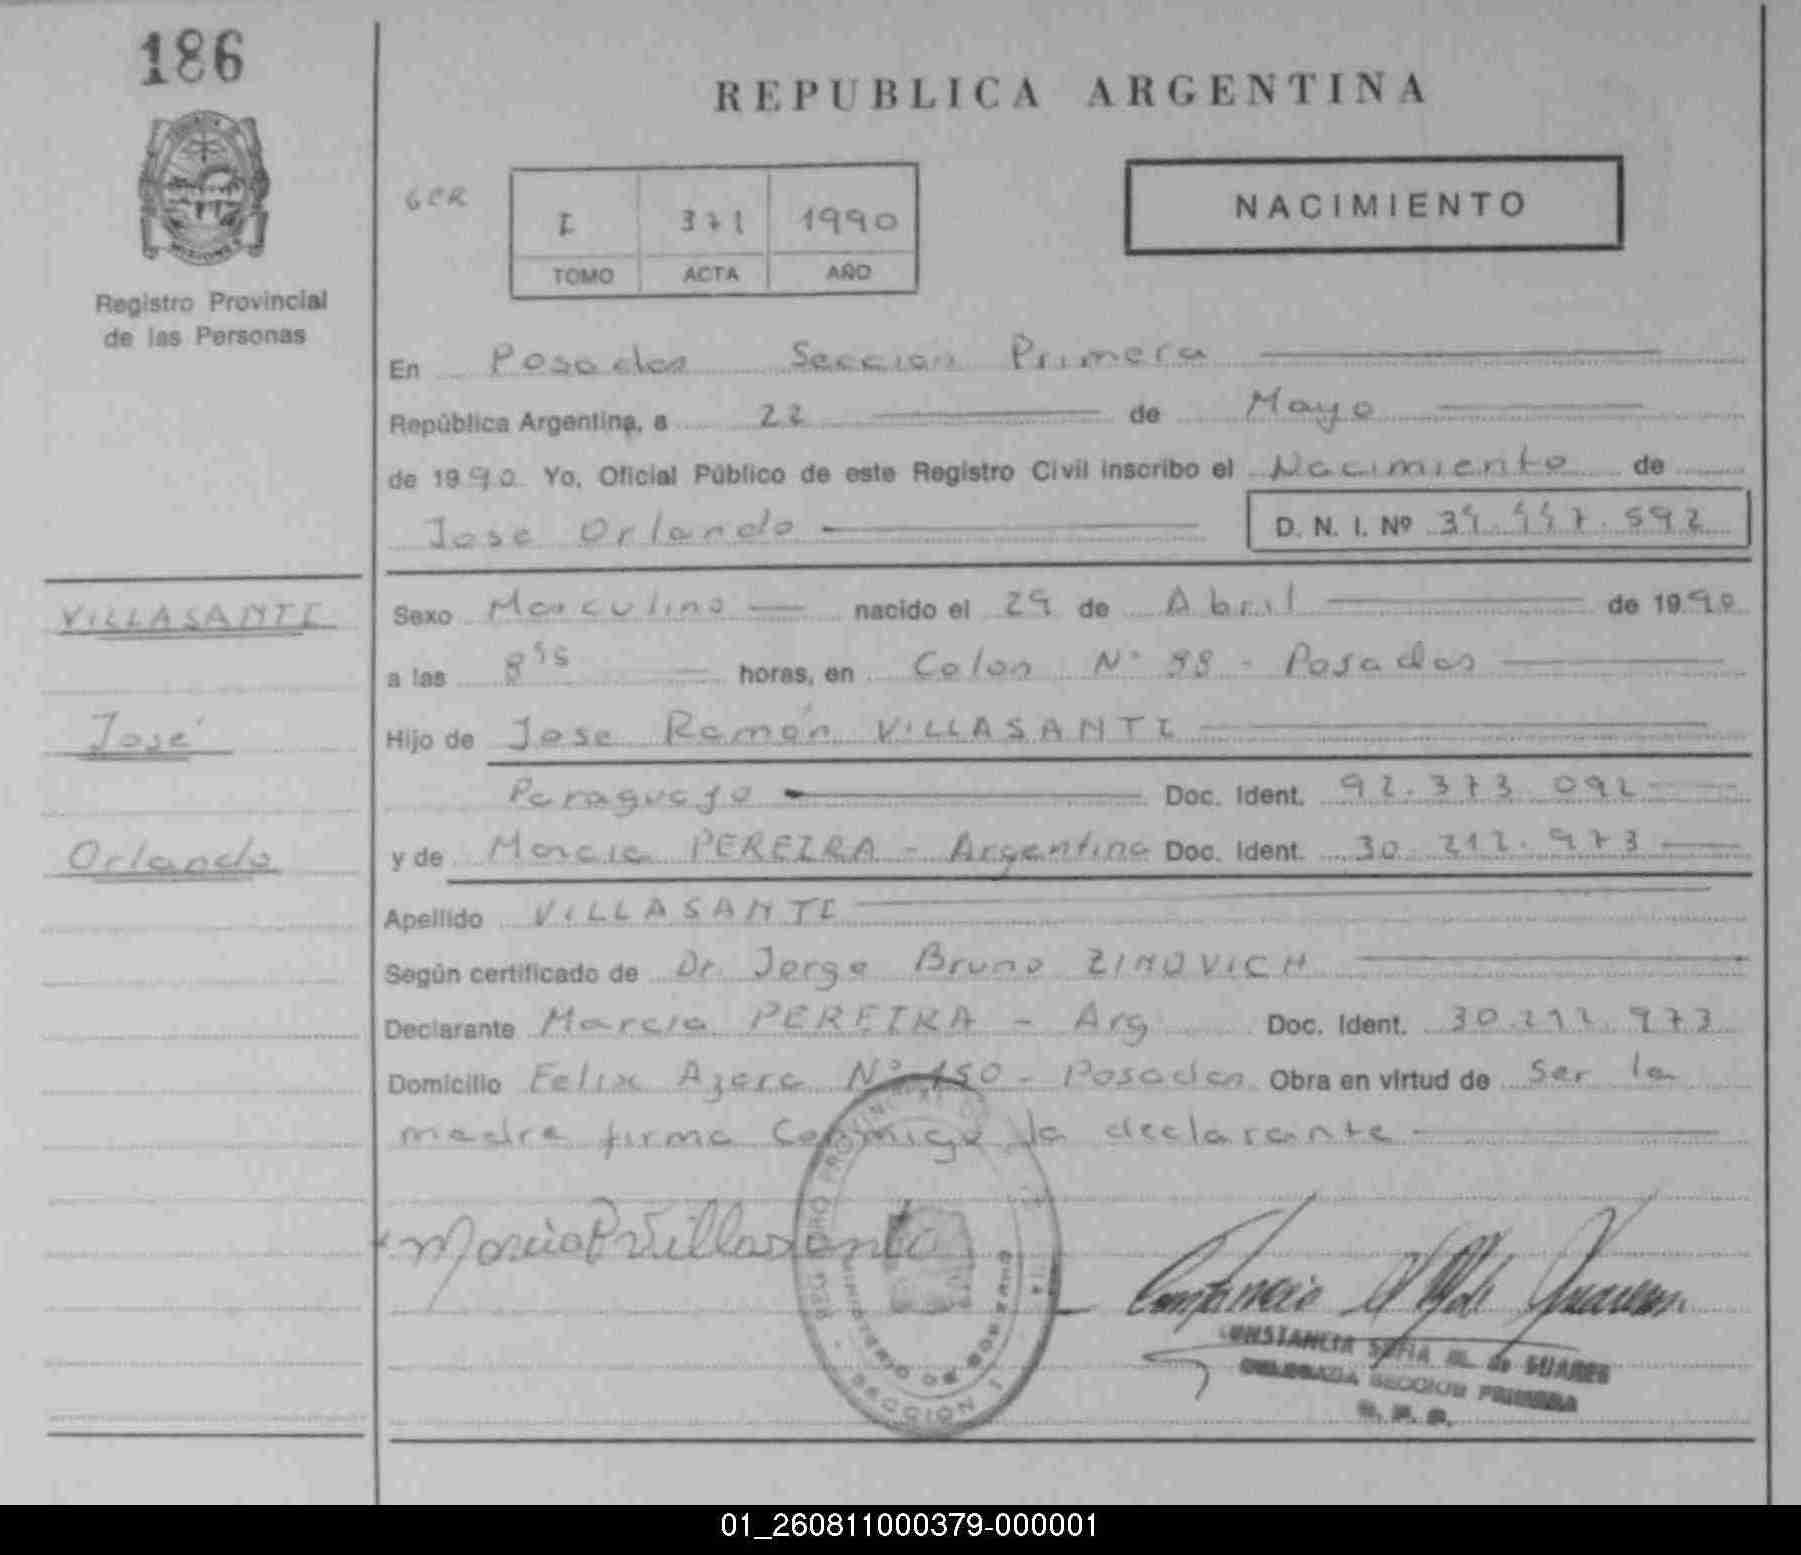 186
REPUBLICA ARGENTINA
Registro Provincial
de las Personas
GCR
I 371 1990
TOMO ACTA AÑO
NACIMIENTO
En Posadas Sección Primera
República Argentina, a 22 de Mayo
de 1990 Yo, Oficial Público de este Registro Civil inscribo el Nacimiento de
Jose Orlando D. N. I. Nº 592
VILLASANTE
José
Orlando
Sexo Masculino nacido el 29 de Abril de 1990
a las 8 horas, en Colon Nº - Posadas
Hijo de Jose Ramón VILLASANTE
Paraguayo Doc. Ident. 92.373.092
y de Marcia PEREIRA - Argentina Doc. Ident. 30.212.973
Apellido VILLASANTE
Según certificado de Dr. Jorge Bruno ZINOVICH
Declarante Marcia PEREIRA - Arg Doc. Ident. 30.212.973
Domicilio Felix Azara Nº 150 - Posadas Obra en virtud de ser la
madre firma conmigo la declarante
Marcia P Villasanti
REGISTRO PROVINCIAL DE
MINISTERIO DE GOBIERNO
SECCION 1
CONSTANCIA SOFIA M. de SUAREZ
DELEGADA SECCION PRIMERA
R. P. P.
01_260811000379-000001